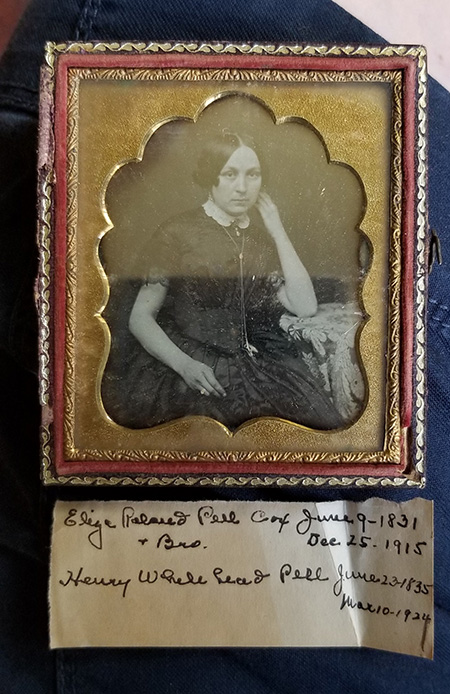 Eliza Roland Pell Cox June 9-1831
+ Bro. Dec 25-1915
Henry Whitehead Pell June 23-1835
Mar 10-1924